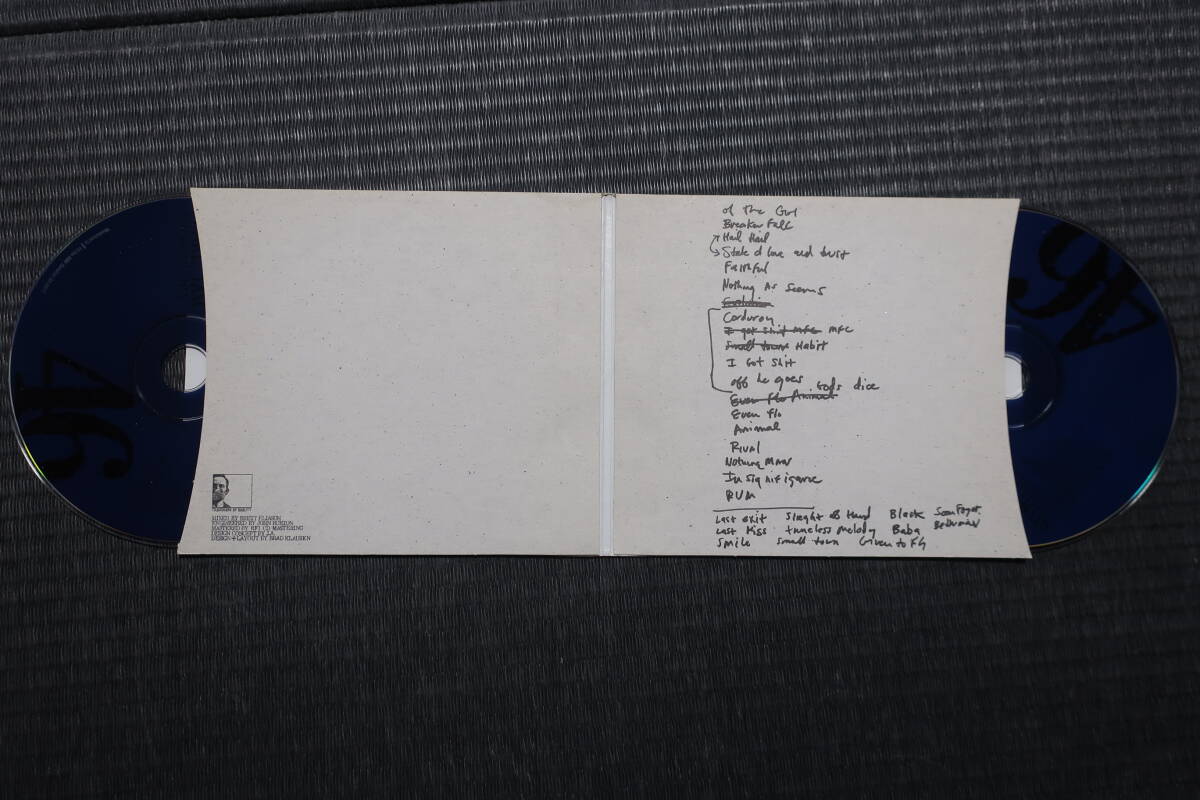 46
MIXED BY BRETT ELIASON
ENGINEERED BY JOHN BURTON
MASTERED BY RFI CD MASTERING
DESIGN CONCEPT BY J.A.
DESIGN + LAYOUT BY BRAD KLAUSEN
of the Girl
Breaker Fall
Hail Hail
State of love and trust
Faithful
Nothing As Seems
Corduroy
I got shit MFC MFC
Small town Habit
I Got Shit
off he goes Gods dice
Even flo Animal
Even flo
Animal
Rival
Nothing Man
Insignificance
RVM
Last exit Sleight of Hand Black Soon Forget
Last Kiss timeless Melody Baba Betterman
Smile small town Given to Fly
46